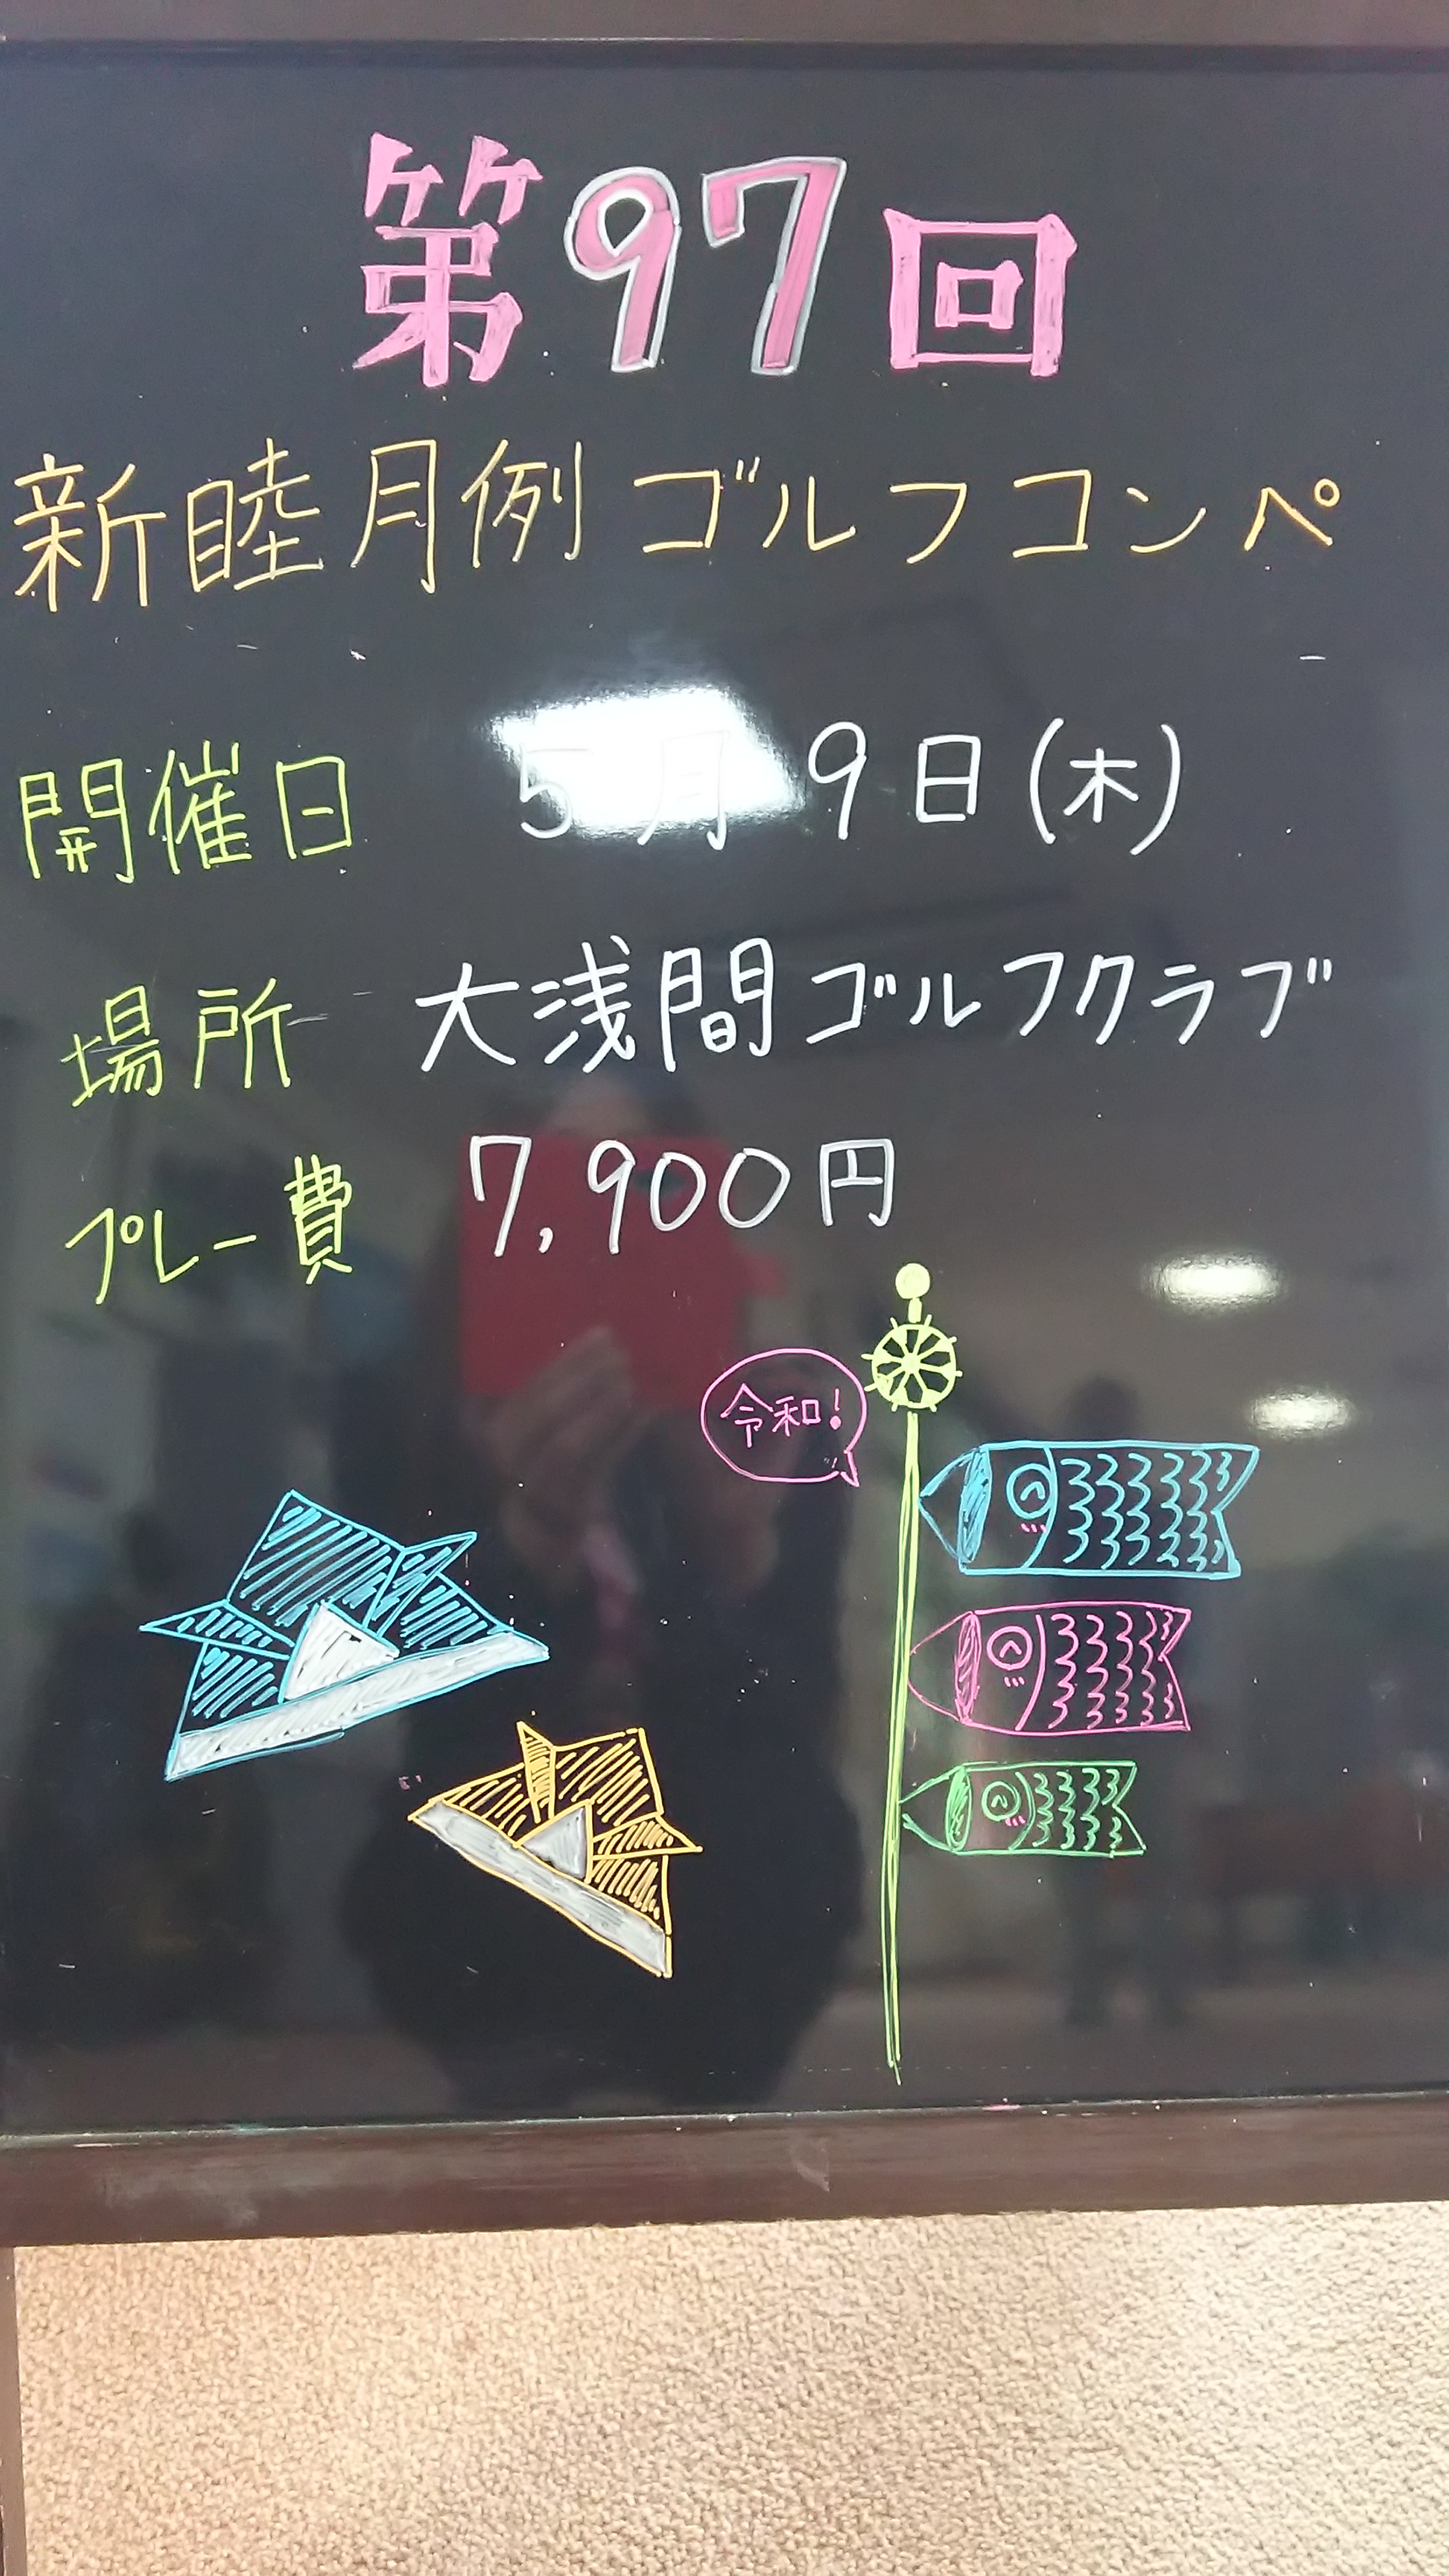 第97回
新睦月例ゴルフコンペ
開催日 5月9日(木)
場所 大浅間ゴルフクラブ
プレー費 7,900円
令和!